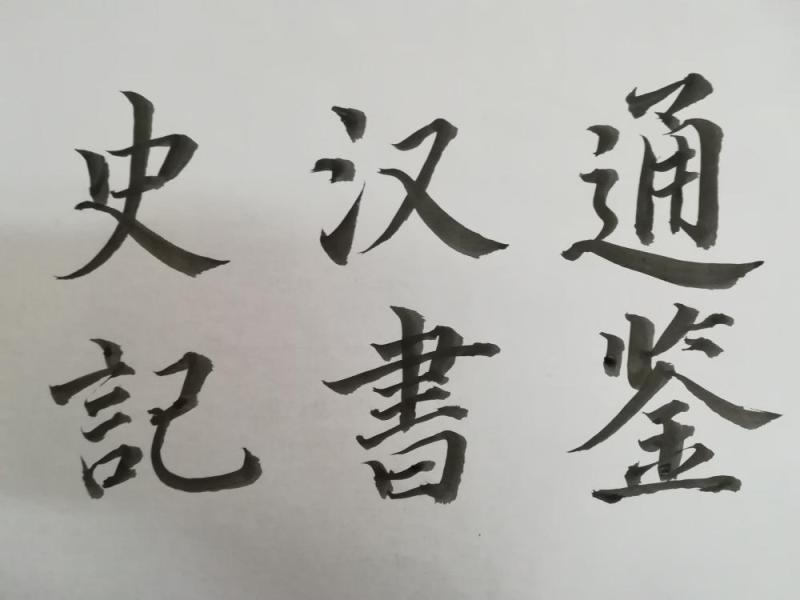 通鉴
汉書
史記